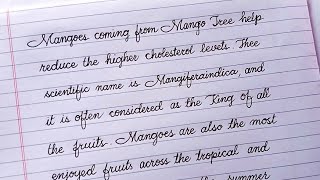 Mangoes coming from Mango Tree help
reduce the higher cholesterol levels. Thee
scientific name is Mangiferaindica, and
it is often considered as the King of all
the fruits. Mangoes are also the most
enjoyed fruits across the tropical and
summer